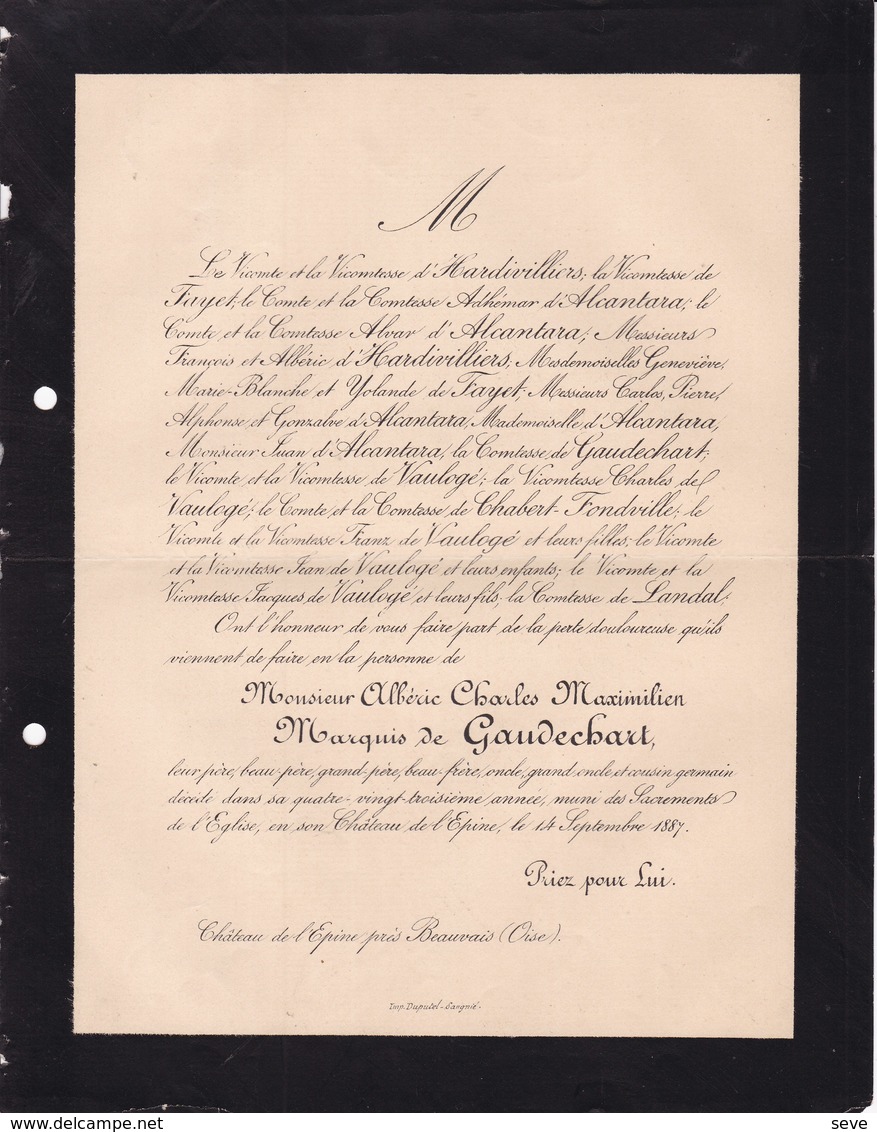 M
Le Vicomte et la Vicomtesse d'Hardivilliers; la Vicomtesse de
Fayet; le Comte et la Comtesse Adhémar d'Alcantara; le
Comte et la Comtesse Alvar d'Alcantara; Messieurs
François et Albéric d'Hardivilliers, Mesdemoiselles Geneviève,
Marie-Blanche et Yolande de Fayet, Messieurs Carlos, Pierre,
Alphonse et Gonzalve d'Alcantara, Mademoiselle d'Alcantara,
Monsieur Juan d'Alcantara, la Comtesse de Gaudechart;
le Vicomte et la Vicomtesse de Vaulogé; la Vicomtesse Charles de
Vaulogé; le Comte et la Comtesse de Chabert-Fondville; le
Vicomte et la Vicomtesse Franz de Vaulogé et leurs filles; le Vicomte
et la Vicomtesse Jean de Vaulogé et leurs enfants; le Vicomte et la
Vicomtesse Jacques de Vaulogé et leurs fils; la Comtesse de Landal;
Ont l'honneur de vous faire part de la perte douloureuse qu'ils
viennent de faire en la personne de
Monsieur Albéric Charles Maximilien
Marquis de Gaudechart,
leur père, beau-père, grand-père, beau-frère, oncle, grand-oncle et cousin germain
décédé dans sa quatre-vingt-troisième année, muni des Sacrements
de l'Eglise, en son Château de l'Epine, le 14 Septembre 1887.
Priez pour Lui.
Château de l'Epine près Beauvais (Oise).
Imp. Duputel-Sangnié.
seve